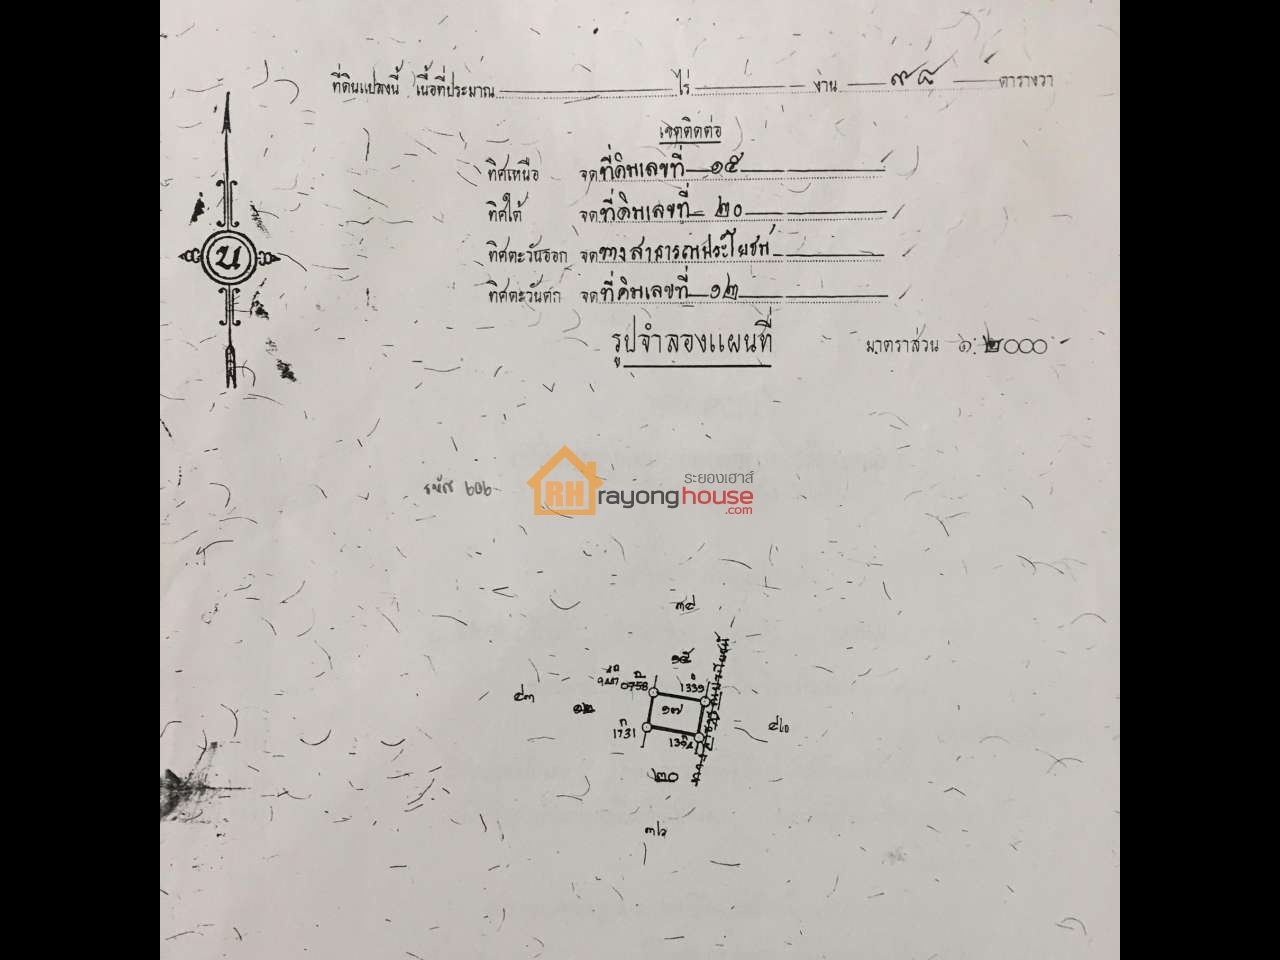 ที่ดินแปลงนี้ เนื้อที่ประมาณ ไร่ งาน ๙๘ ตารางวา
เขตติดต่อ
ทิศเหนือ จด ที่ดินเลขที่ ๑๕
ทิศใต้ จด ที่ดินเลขที่ ๒๐
ทิศตะวันออก จด ทางสาธารณประโยชน์
ทิศตะวันตก จด ที่ดินเลขที่ ๑๒
รูปจำลองแผนที่ มาตราส่วน ๑:๒๐๐๐
น
ระยองเฮาส์
RH rayonghouse
.com
รหัส ๖๐๖
๓๘
๑๕
0758 1339
๔๓ ๑๒ ๑๗
1731 1394
ทางสาธารณประโยชน์
๒๐
๓๖